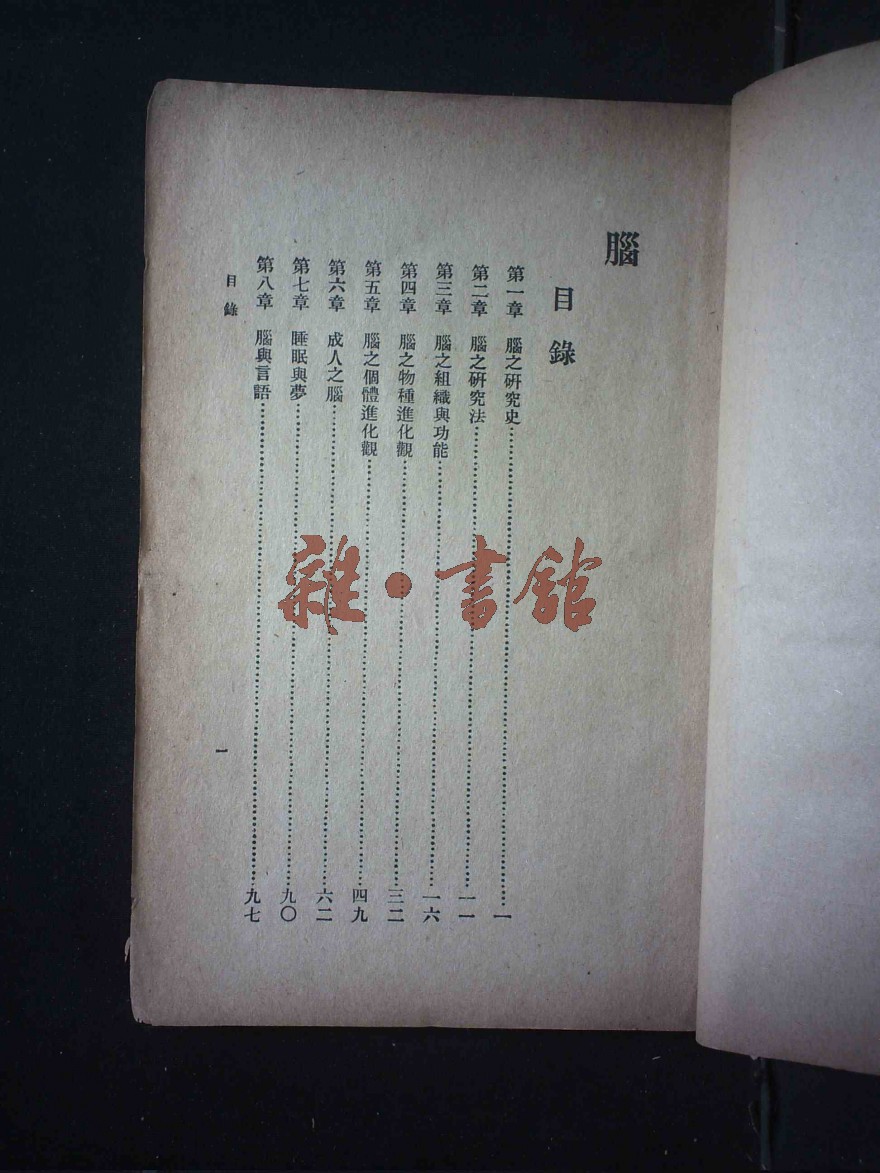 腦
目錄
第一章 腦之研究史……一
第二章 腦之研究法……一一
第三章 腦之組織與功能……一六
第四章 腦之物種進化觀……三二
第五章 腦之個體進化觀……四九
第六章 成人之腦……六二
第七章 睡眠與夢……九〇
第八章 腦與言語……九七
目錄
一
雜·書館